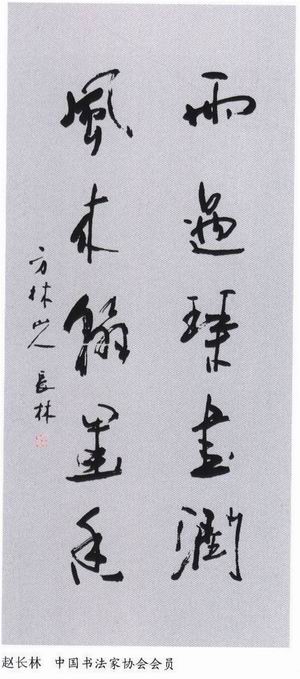 雨過琴書潤
風來翰墨香
方林山人 長林
赵长林 中国书法家协会会员